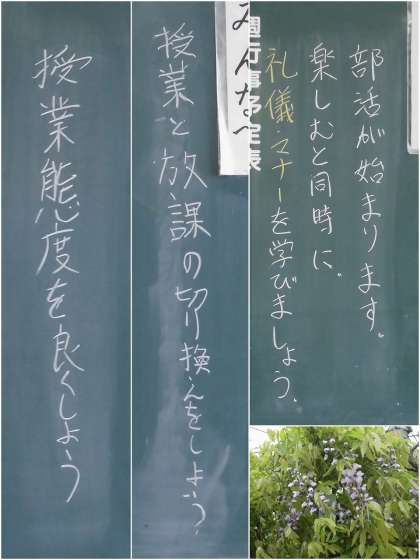 授業態度を良くしよう
みんなへ
授業と放課の切り換えをしよう。
部活が始まります。
楽しむと同時に、
礼儀・マナーを学びましょう。
週行事予定表